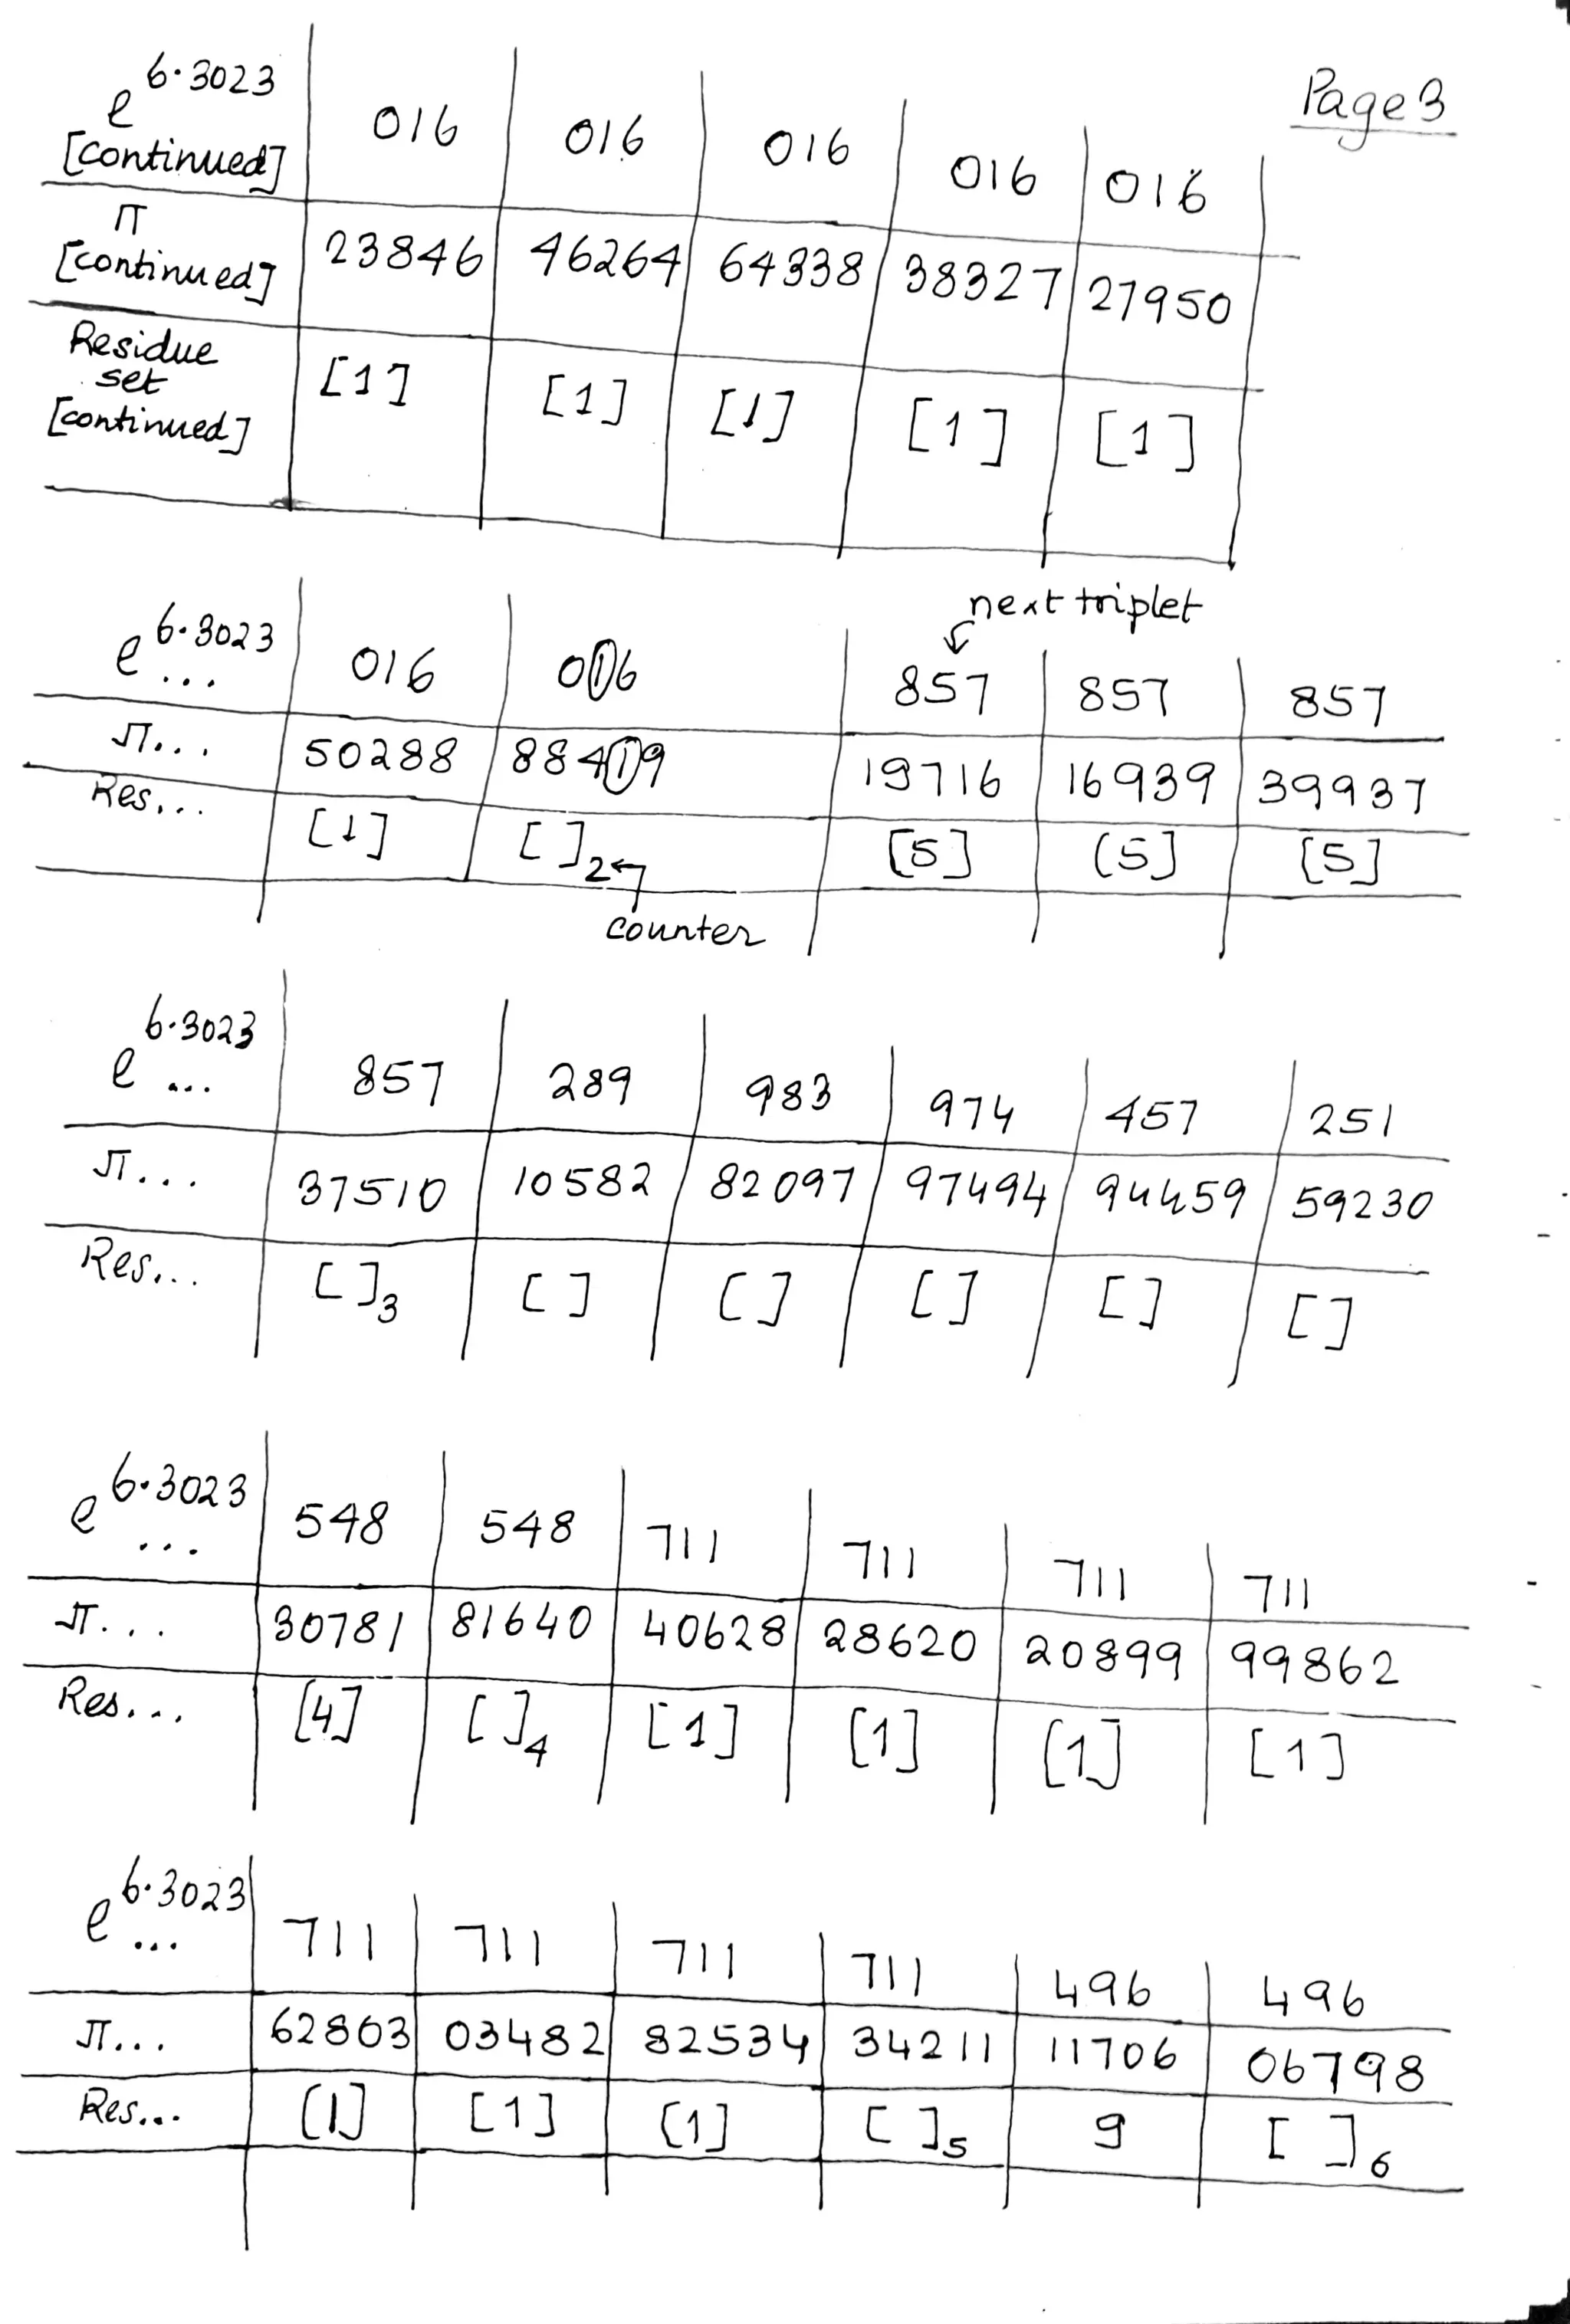 Page 3
e^6.3023 [continued] 016 016 016 016 016
π [continued] 23846 46264 64338 38327 27950
Residue set [continued] [1] [1] [1] [1] [1]
next triplet
e^6.3023 ... 016 016 857 857 857
π... 50288 88419 19716 16939 39937
Res... [1] [ ]2 [5] [5] [5]
counter
e^6.3023 ... 857 289 983 974 457 251
π... 37510 10582 82097 97494 94459 59230
Res... [ ]3 [ ] [ ] [ ] [ ] [ ]
e^6.3023 ... 548 548 711 711 711 711
π... 30781 81640 40628 28620 20899 99862
Res... [4] [ ]4 [1] [1] [1] [1]
e^6.3023 ... 711 711 711 711 496 496
π... 62803 03482 82534 34211 11706 06798
Res... [1] [1] [1] [ ]5 9 [ ]6